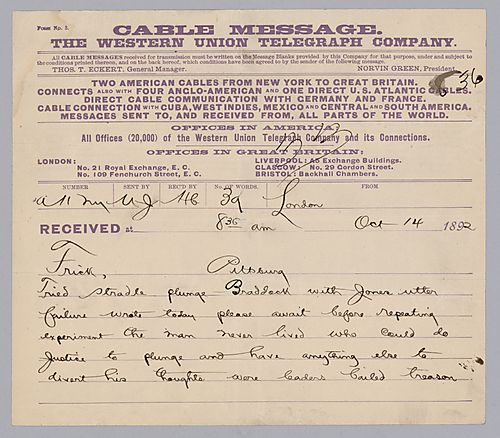 Form No. 1.
CABLE MESSAGE.
THE WESTERN UNION TELEGRAPH COMPANY.
All CABLE MESSAGES received for transmission must be written on the Message Blanks provided by this Company for that purpose, under and subject to
the conditions printed thereon, and on the back hereof, which conditions have been agreed to by the sender of the following message.
THOS. T. ECKERT, General Manager. NORVIN GREEN, President.
TWO AMERICAN CABLES FROM NEW YORK TO GREAT BRITAIN.
CONNECTS ALSO WITH FOUR ANGLO-AMERICAN AND ONE DIRECT U.S. ATLANTIC CABLES.
DIRECT CABLE COMMUNICATION WITH GERMANY AND FRANCE.
CABLE CONNECTION WITH CUBA, WEST INDIES, MEXICO AND CENTRAL AND SOUTH AMERICA.
MESSAGES SENT TO, AND RECEIVED FROM, ALL PARTS OF THE WORLD.
OFFICES IN AMERICA:
All Offices (20,000) of the Western Union Telegraph Company and its Connections.
OFFICES IN GREAT BRITAIN:
LONDON: LIVERPOOL: A5 Exchange Buildings.
No. 21 Royal Exchange, E. C. GLASGOW: No. 29 Gordon Street.
No. 109 Fenchurch Street, E. C. BRISTOL: Backhall Chambers.
NUMBER SENT BY REC'D BY No. OF WORDS. FROM
39 London
RECEIVED at 8 36 am Oct 14 1892
Frick, Pittsburg
Tried stradle plunge Braddock with Jones utter
failure wrote today please await before repeating
experiment the man never lived who could do
justice to plunge and have anything else to
divert his thoughts were leaders bailed treason